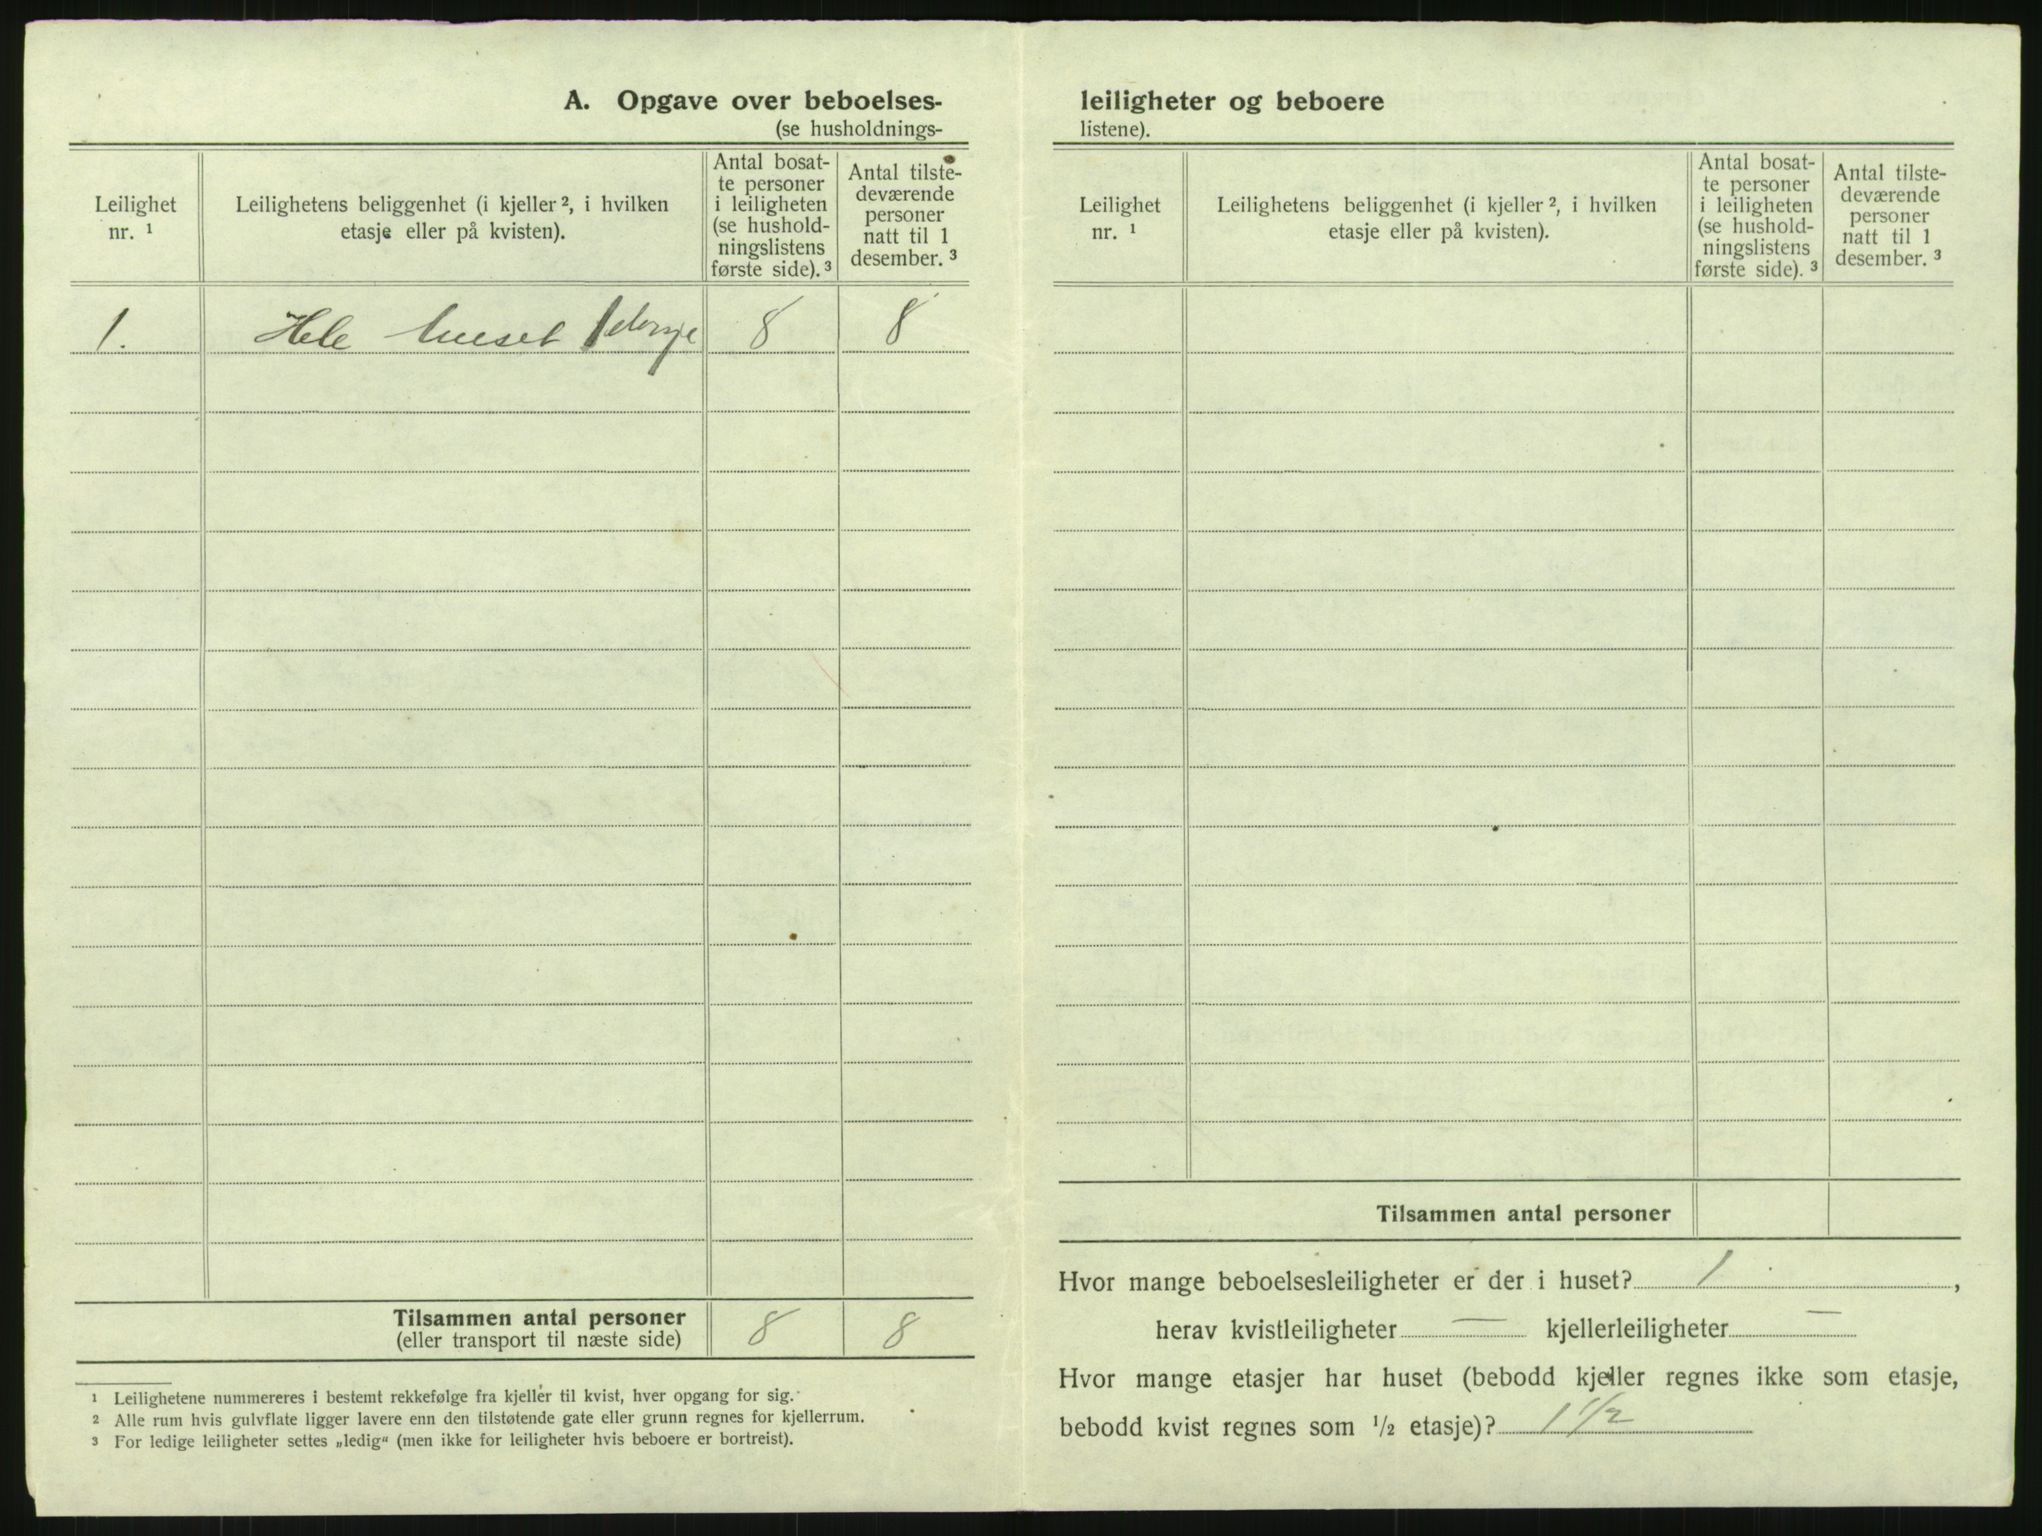 A. Opgave over beboelses-
(se husholdnings-
Leilighet
nr. ¹
Leilighetens beliggenhet (i kjeller ², i hvilken
etasje eller på kvisten).
Antal bosat-
te personer
i leiligheten
(se hushold-
ningslistens
første side). ³
Antal tilste-
deværende
personer
natt til 1
desember. ³
1. Hele huset 8 8
Tilsammen antal personer 8 8
(eller transport til næste side)
¹ Leilighetene nummereres i bestemt rekkefølge fra kjeller til kvist, hver opgang for sig.
² Alle rum hvis gulvflate ligger lavere enn den tilstøtende gate eller grunn regnes for kjellerrum.
³ For ledige leiligheter settes „ledig“ (men ikke for leiligheter hvis beboere er bortreist).
leiligheter og beboere
listene).
Leilighet
nr. ¹
Leilighetens beliggenhet (i kjeller ², i hvilken
etasje eller på kvisten).
Antal bosat-
te personer
i leiligheten
(se hushold-
ningslistens
første side). ³
Antal tilste-
deværende
personer
natt til 1
desember. ³
Tilsammen antal personer
Hvor mange beboelsesleiligheter er der i huset? 1,
herav kvistleiligheter — kjellerleiligheter —
Hvor mange etasjer har huset (bebodd kjeller regnes ikke som etasje,
bebodd kvist regnes som ½ etasje)? 1 1/2